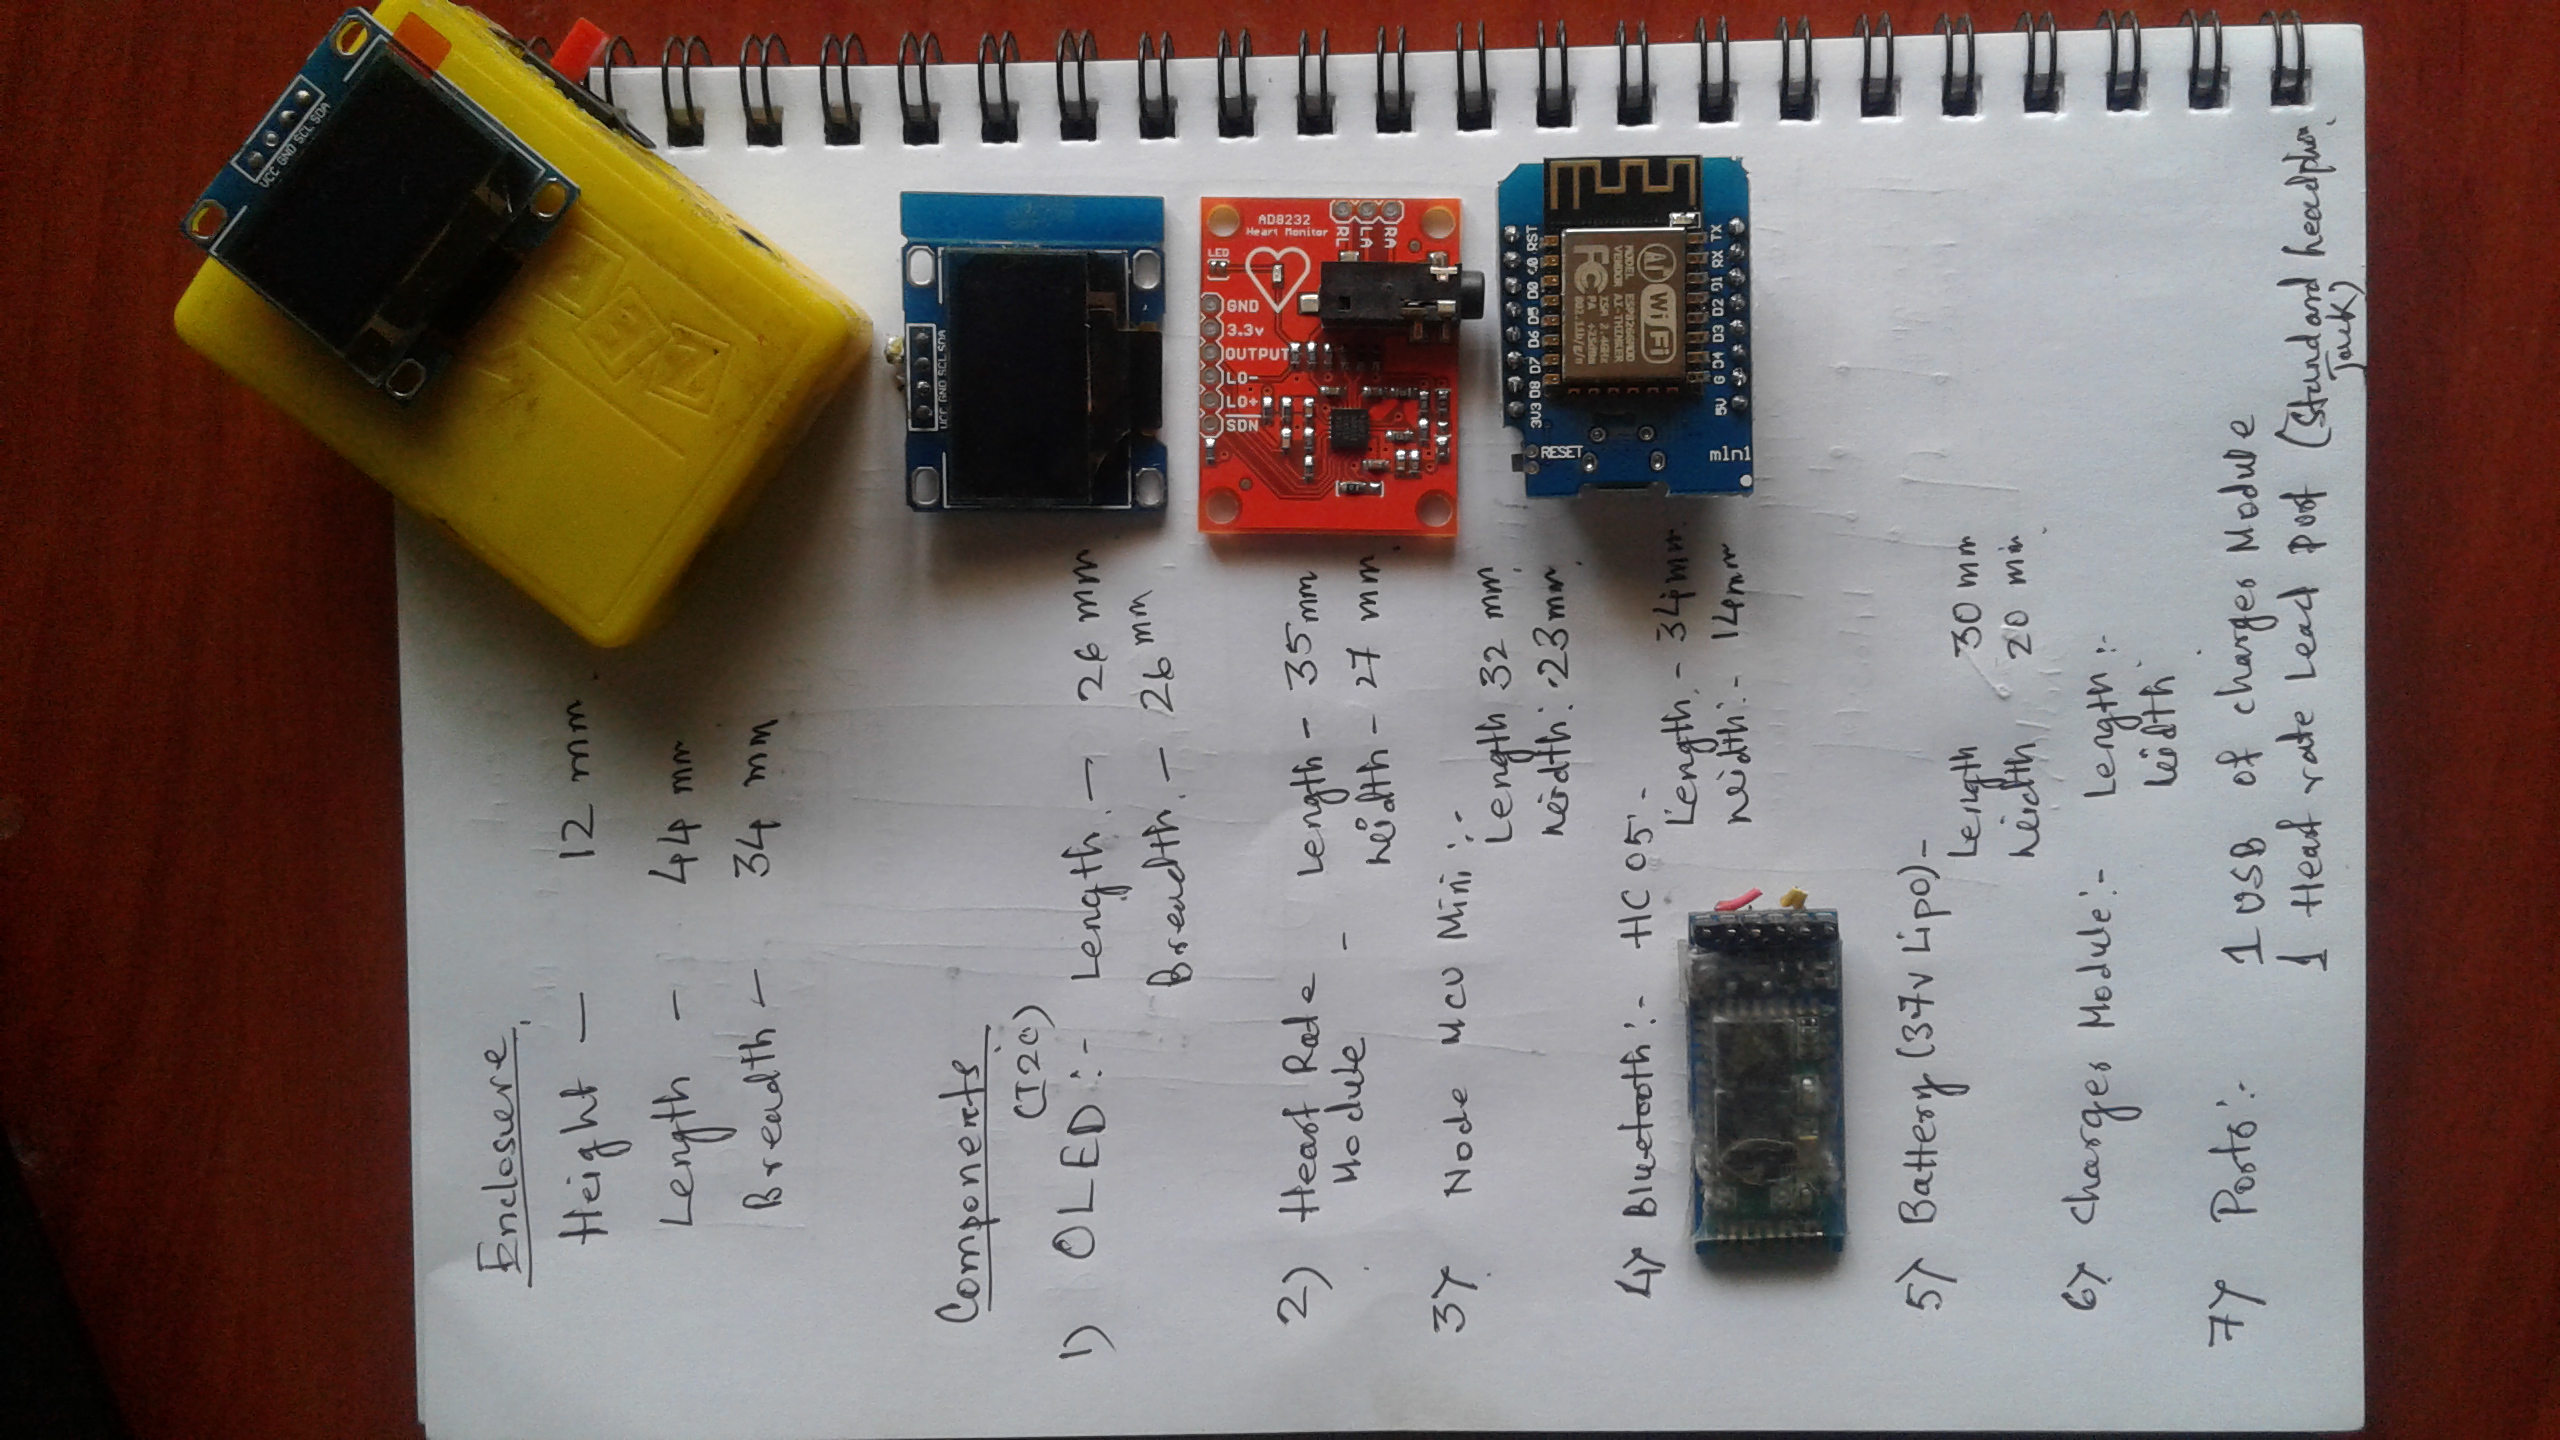 Enclosure
Height — 12 mm
Length — 44 mm
Breadth — 34 mm
Components
(I2C)
1) OLED :- Length. — 26 mm
Breadth. — 26 mm
2) Heart Rate - Length - 35 mm
Module width - 27 mm
3) Node MCU Mini :-
Length 32 mm
width : 23 mm
4) Bluetooth :- HC 05 -
Length. - 34 mm
width :- 14 mm
5) Battery (3.7v Lipo) -
Length 30 mm
width 20 mm
6) Charger Module :- Length :-
width
7) Ports :- 1 USB of charger Module
1 Heart rate Lead port (Standard headphon
Jack)
VCC GND SCL SDA
VCC GND SCL SDA
AD8232
Heart Monitor
LED
RL
LA
RA
GND
3.3v
OUTPUT
LO-
LO+
SDN
RST
A0
D0
D5
D6
D7
D8
3V3
TX
RX
D1
D2
D3
D4
G
5V
RESET
mini
Ai
WiFi
FC
MODEL ESP8266MOD
VENDOR AI-THINKER
ISM 2.4GHz
PA +25dBm
802.11b/g/n